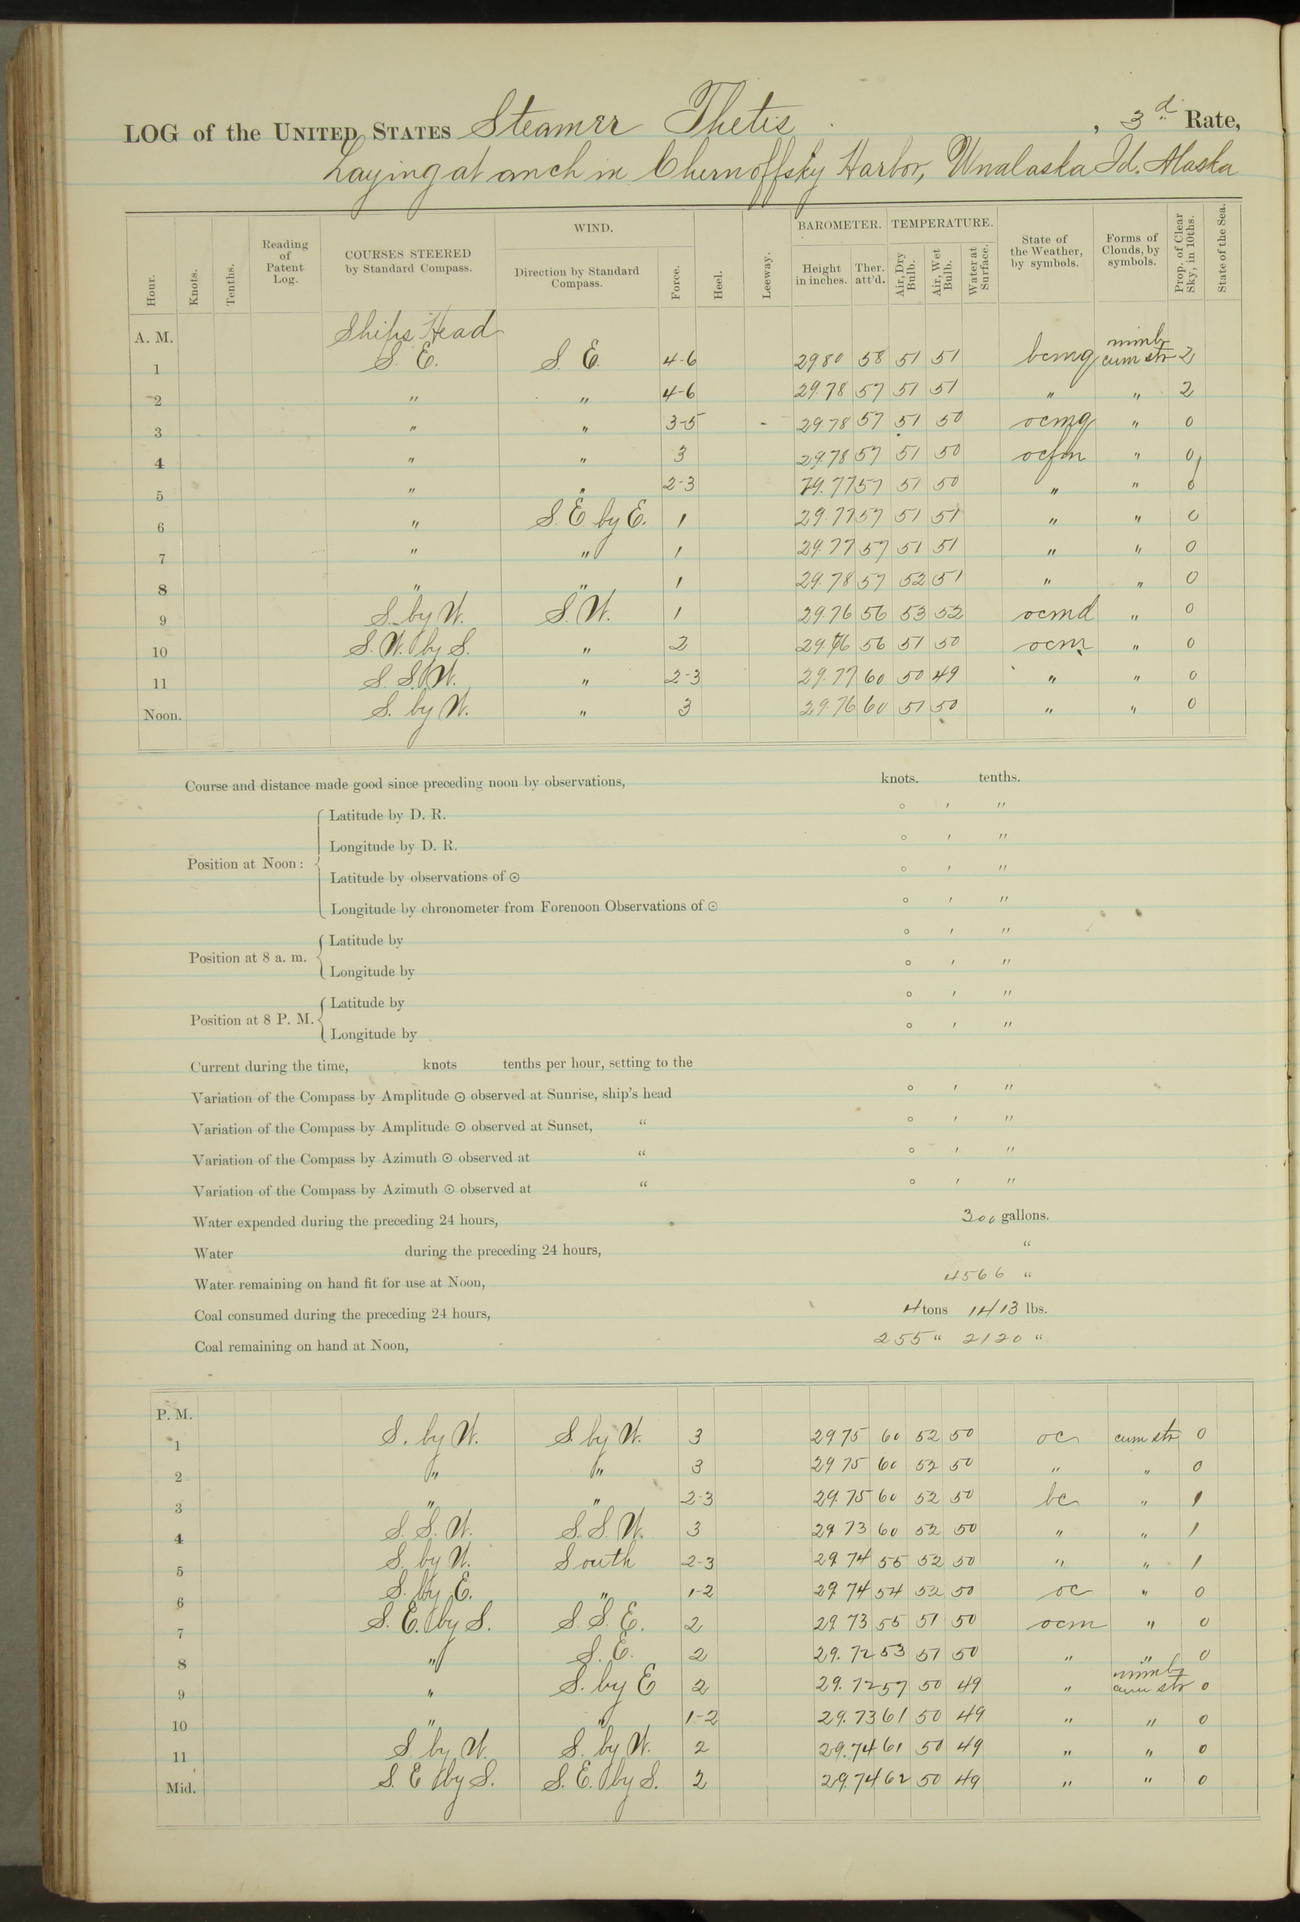 LOG of the UNITED STATES Steamer Thetis, 3d Rate,
Laying at anch in Chernoffsky Harbor, Unalaska Id. Alaska
Hour. Knots. Tenths. Reading of Patent Log. COURSES STEERED by Standard Compass. WIND. Direction by Standard Compass. Force. Heel. Leeway. BAROMETER. Height in inches. Ther. att'd. TEMPERATURE. Air, Dry Bulb. Air, Wet Bulb. Water at Surface. State of the Weather, by symbols. Forms of Clouds, by symbols. Prop. of Clear Sky, in 10ths. State of the Sea.
A. M. Ships Head
1 S. E. S. E. 4-6 29 80 58 51 51 bcmq nimb cum str 2
2 " " 4-6 29.78 57 51 51 " " 2
3 " " 3-5 - 29.78 57 51 50 ocmq " 0
4 " " 3 29.78 57 51 50 ocfm " 0
5 " " 2-3 29.77 57 51 50 " " 0
6 " S. E by E. 1 29.77 57 51 51 " " 0
7 " " 1 29.77 57 51 51 " " 0
8 " " 1 29.78 57 52 51 " " 0
9 S. by W. S. W. 1 29.76 56 53 52 ocmd " 0
10 S. W. by S. " 2 29.76 56 51 50 ocm " 0
11 S. S. W. " 2-3 29.77 60 50 49 " " 0
Noon. S. by W. " 3 29.76 60 51 50 " " 0
Course and distance made good since preceding noon by observations, knots. tenths.
Position at Noon: Latitude by D. R. ° ′ ″
Longitude by D. R. ° ′ ″
Latitude by observations of ⊙ ° ′ ″
Longitude by chronometer from Forenoon Observations of ⊙ ° ′ ″
Position at 8 a. m. Latitude by ° ′ ″
Longitude by ° ′ ″
Position at 8 P. M. Latitude by ° ′ ″
Longitude by ° ′ ″
Current during the time, knots tenths per hour, setting to the
Variation of the Compass by Amplitude ⊙ observed at Sunrise, ship's head ° ′ ″
Variation of the Compass by Amplitude ⊙ observed at Sunset, " ° ′ ″
Variation of the Compass by Azimuth ⊙ observed at " ° ′ ″
Variation of the Compass by Azimuth ⊙ observed at " ° ′ ″
Water expended during the preceding 24 hours, 300 gallons.
Water during the preceding 24 hours, "
Water remaining on hand fit for use at Noon, 4566 "
Coal consumed during the preceding 24 hours, 4 tons 1413 lbs.
Coal remaining on hand at Noon, 255 " 2120 "
P. M.
1 S. by W. S. by W. 3 29 75 60 52 50 oc cum str 0
2 " " 3 29 75 60 52 50 " " 0
3 " " 2-3 29.75 60 52 50 bc " 1
4 S. S. W. S. S. W. 3 29 73 60 52 50 " " 1
5 S. by W. South 2-3 29 74 55 52 50 " " 1
6 S. by E. " 1-2 29 74 54 52 50 oc " 0
7 S. E. by S. S. S. E. 2 29 73 55 51 50 ocm " 0
8 " S. E. 2 29.72 53 51 50 " " 0
9 " S. by E 2 29.72 57 50 49 " nimb cum str 0
10 " " 1-2 29.73 61 50 49 " " 0
11 S by W. S. by W. 2 29.74 61 50 49 " " 0
Mid. S. E by S. S. E. by S. 2 29.74 62 50 49 " " 0